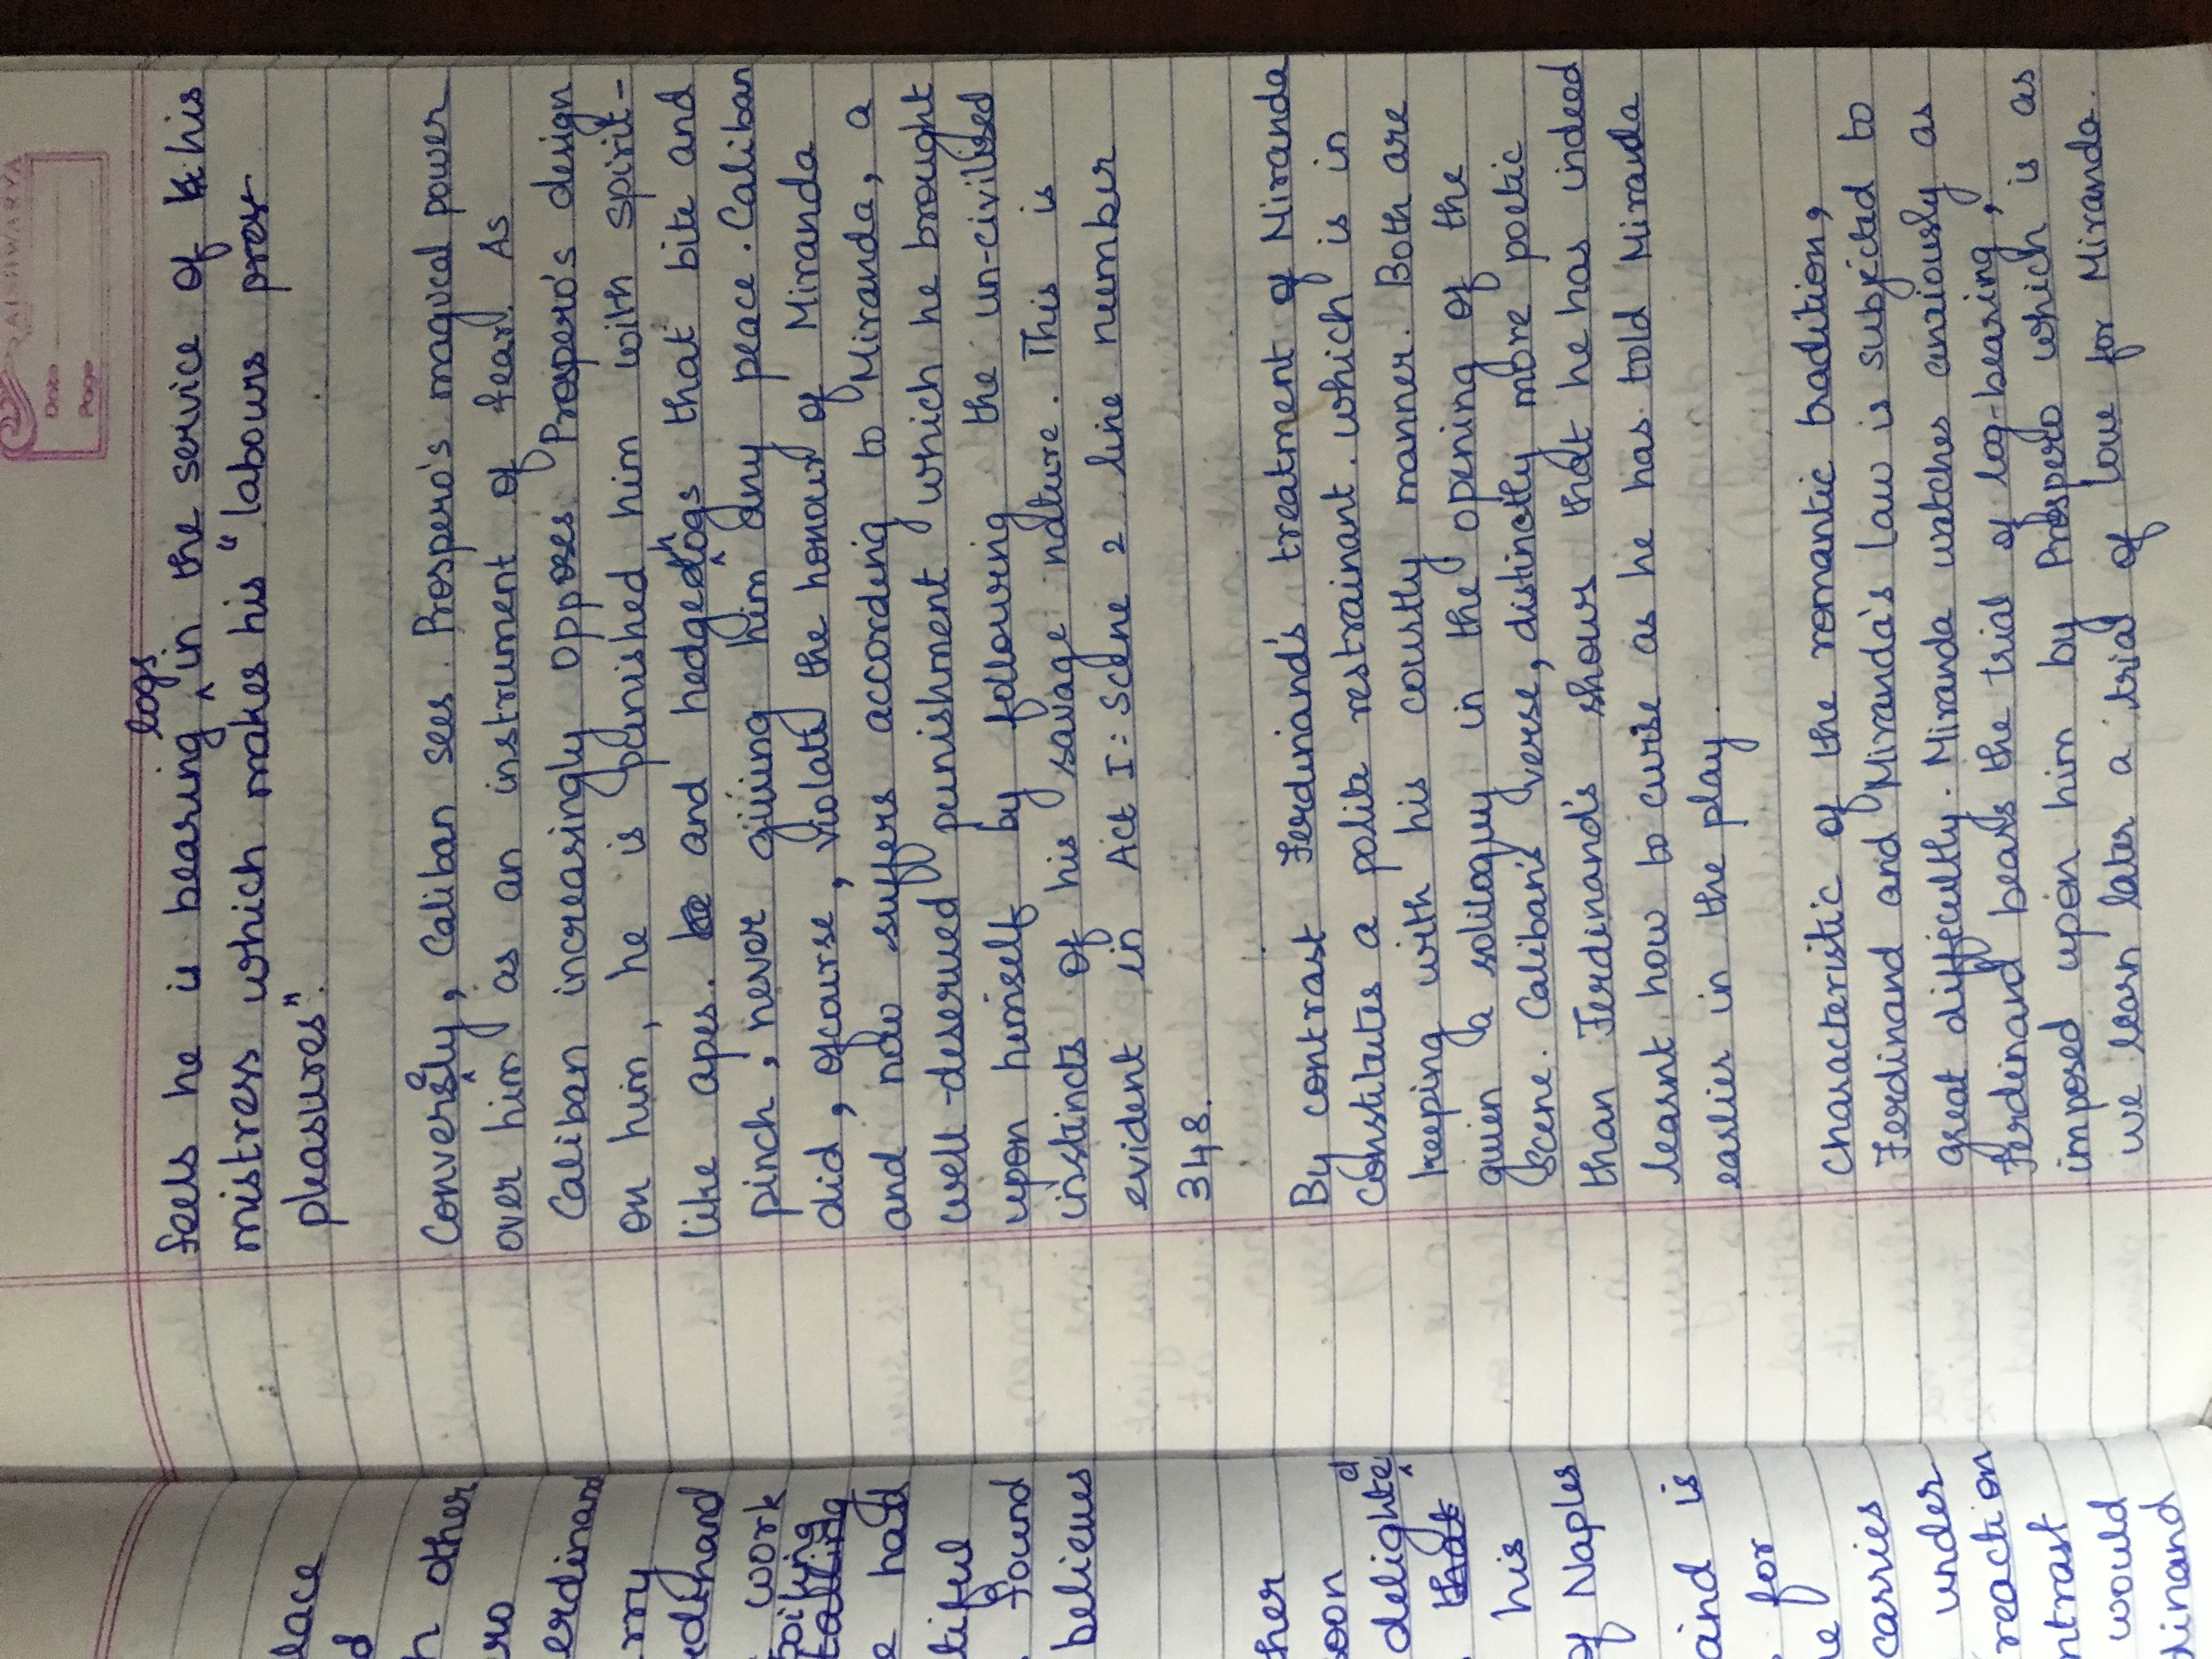 AISHWARYA
Date
Page
lace
d
h other
ro
erdinand
rry
rdinand
work
boiling
talling
e had
tiful
found
believes
her
soon
delighted
that
his
of Naples
and is
for
ne
carries
under
reaction
ntrast
would
dinand
feels he is bearing logs in the service of his
mistress which makes his "labours
pleasures".
Conversely, Caliban sees Prospero's magical power
over him as an instrument of fear. As
Caliban increasingly opposes Prospero's design
on him, he is punished him with spirit-
like apes. and hedgehogs that bite and
pinch, never giving him any peace. Caliban
did, ofcourse, violate the honour of Miranda
and now suffers according to Miranda, a
well-deserved punishment which he brought
upon himself by following the un-civilised
instincts of his savage nature. This is
evident in Act I: Scene 2 line number
348.
By contrast Ferdinand's treatment of Miranda
constitutes a polite restrainant. which is in
keeping with his courtly manner. Both are
given a soliloquy in the opening of the
scene. Caliban's verse, distinctly more poetic
than Ferdinand's shows that he has indeed
learnt how to curse as he has told Miranda
earlier in the play.
Characteristic of the romantic tradition,
Ferdinand and Miranda's law is subjected to
great difficultly. Miranda watches anxiously as
Ferdinand bears the trial of log-bearing,
imposed upon him by Prospero which is as
we learn later a trial of love for Miranda.